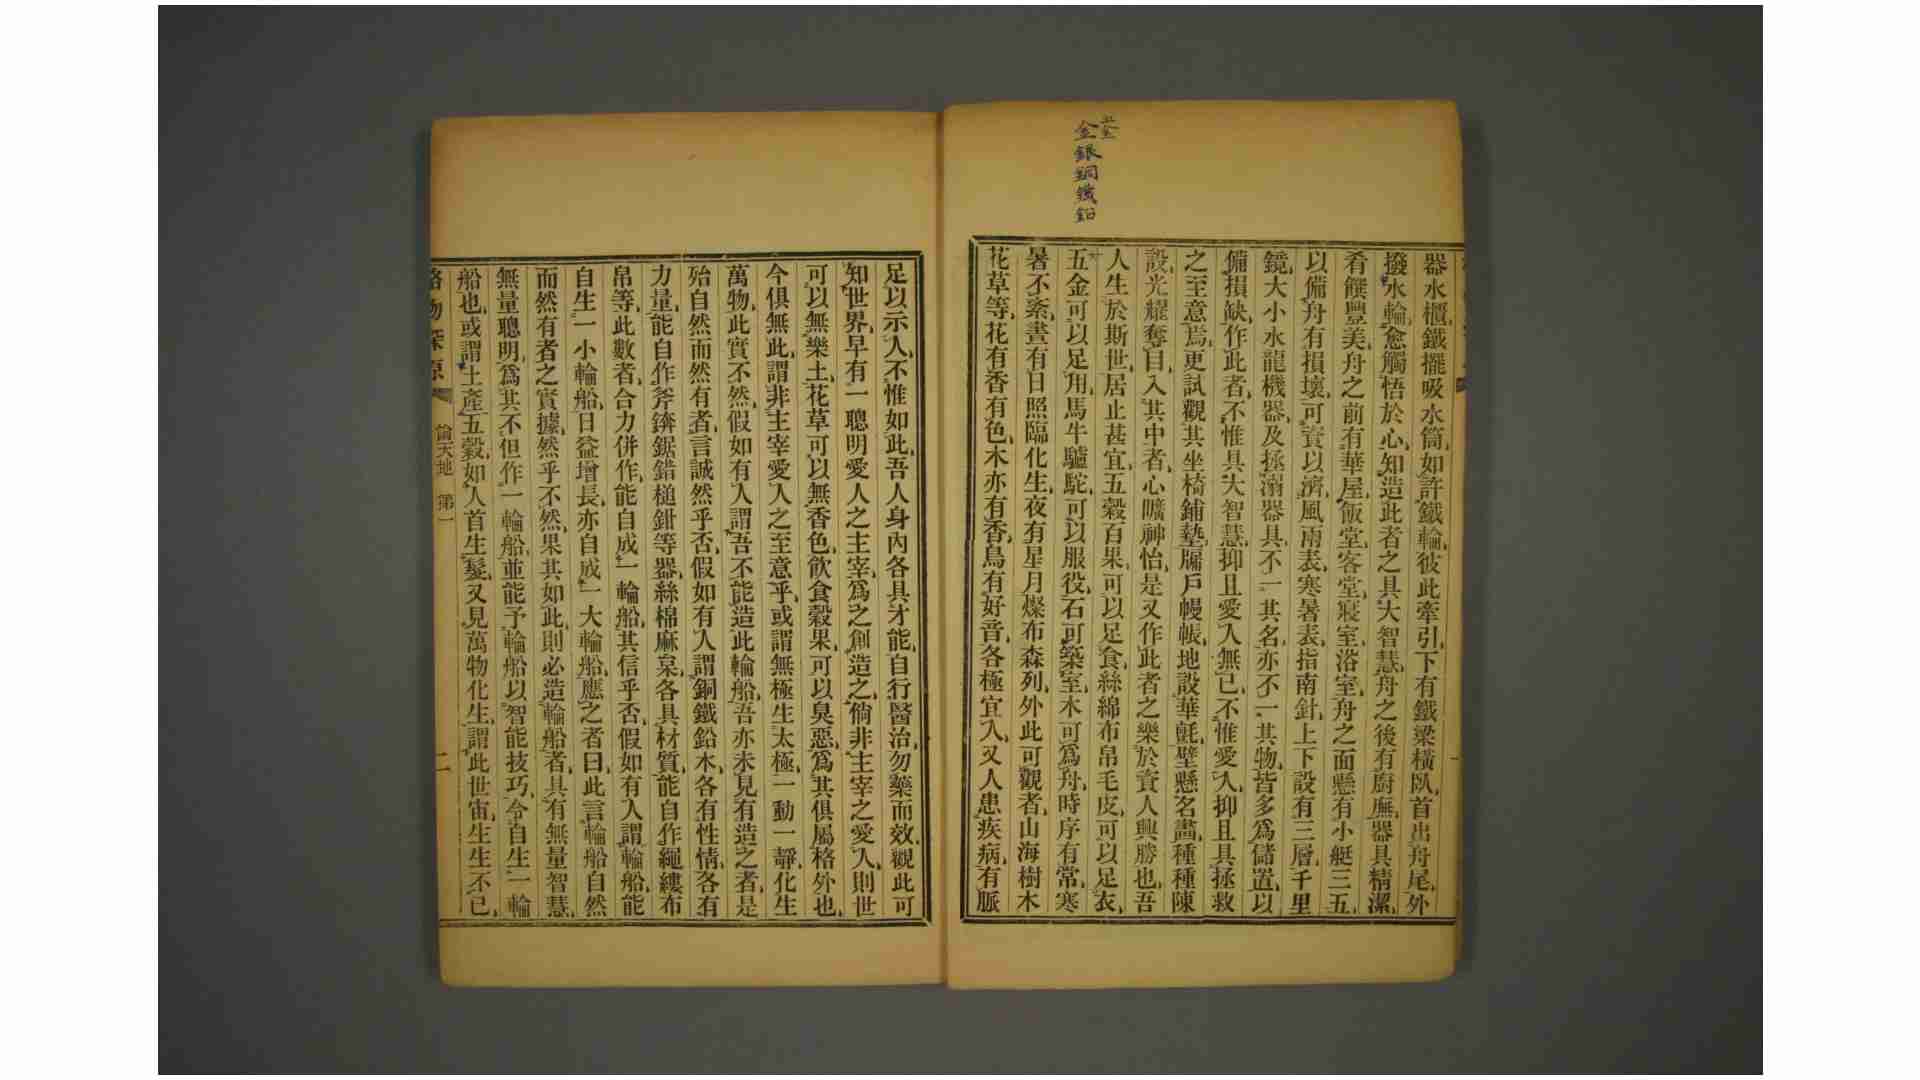 五金
金銀銅鐵鉛
器水櫃鐵擺吸水筒、如許鐵輪、彼此牽引、下有鐵梁橫臥、首出舟尾、外
撥水輪、愈觸悟於心、知造此者之具大智慧、舟之後有廚廡、器具精潔、
肴饌豐美、舟之前有華屋、飯堂、客堂、寢室、浴室、舟之面懸有小艇三五
以備舟有損壞、可資以濟、風雨表、寒暑表、指南針、上下設有三層、千里
鏡、大小水龍機器、及拯溺器具不一其名、亦不一其物、皆多為儲置、以
備損缺、作此者、不惟具大智慧、抑且愛人無已、不惟愛人、抑且具拯救
之至意焉、更試觀其坐椅鋪墊、牖戶幔帳、地設華氈、壁懸名畫、種種陳
設、光耀奪目、入其中者、心曠神怡、是又作此者之樂於資人興勝也、吾
人生於斯世、居止甚宜、五穀百果、可以足食、絲綿布帛毛皮、可以足衣、
五金可以足用、馬牛驢駝、可以服役、石可築室、木可為舟、時序有常、寒
暑不紊、晝有日照臨化生、夜有星月燦布森列、外此可觀者、山海樹木
花草等、花有香有色、木亦有香、鳥有好音、各極宜人、又人患疾病、有脈
足以示人、不惟如此、吾人身內各具才能、自行醫治、勿藥而效、觀此可
知世界、早有一聰明愛人之主宰、為之創造之、倘非主宰之愛人、則世
可以無樂土、花草可以無香色、飲食穀果、可以臭惡、為其俱屬格外也、
今俱無此、謂非主宰愛人之至意乎、或謂無極生太極、一動一靜、化生
萬物、此實不然、假如有人謂、吾不能造此輪船、吾亦未見有造之者、是
殆自然而然有者、言誠然乎、否、假如有人謂、銅鐵鉛木、各有性情、各有
力量、能自作斧錛鋸錯槌鉗等器、絲棉麻枲各具材質、能自作繩縷布
帛等、此數者、合力併作、能自成一輪船、其信乎否、假如有人謂、輪船、能
自生一小輪船、日益增長、亦自成一大輪船、應之者曰、此言輪船自然
而然有者之實據、然乎不然、果其如此、則必造輪船者、具有無量智慧、
無量聰明、為其不但作一輪船、並能予輪船以智能技巧、令自生一輪
船也、或謂土產五穀、如人首生髮、又見萬物化生、謂此世宙、生生不已、
格物探原
論天地 第一
二